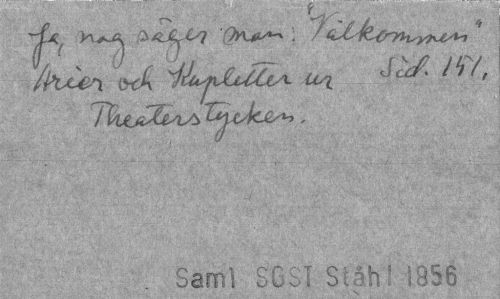 Ja, nog säger man: "Välkommen"
Arier och Kupletter ur Sid. 151.
Theaterstycken.
Saml SGST Ståhl 1856